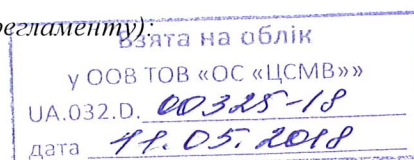 регламенту):
Взята на облік
у ООВ ТОВ «ОС «ЦСМВ»»
UA.032.D. 00325-18
дата 11.05.2018